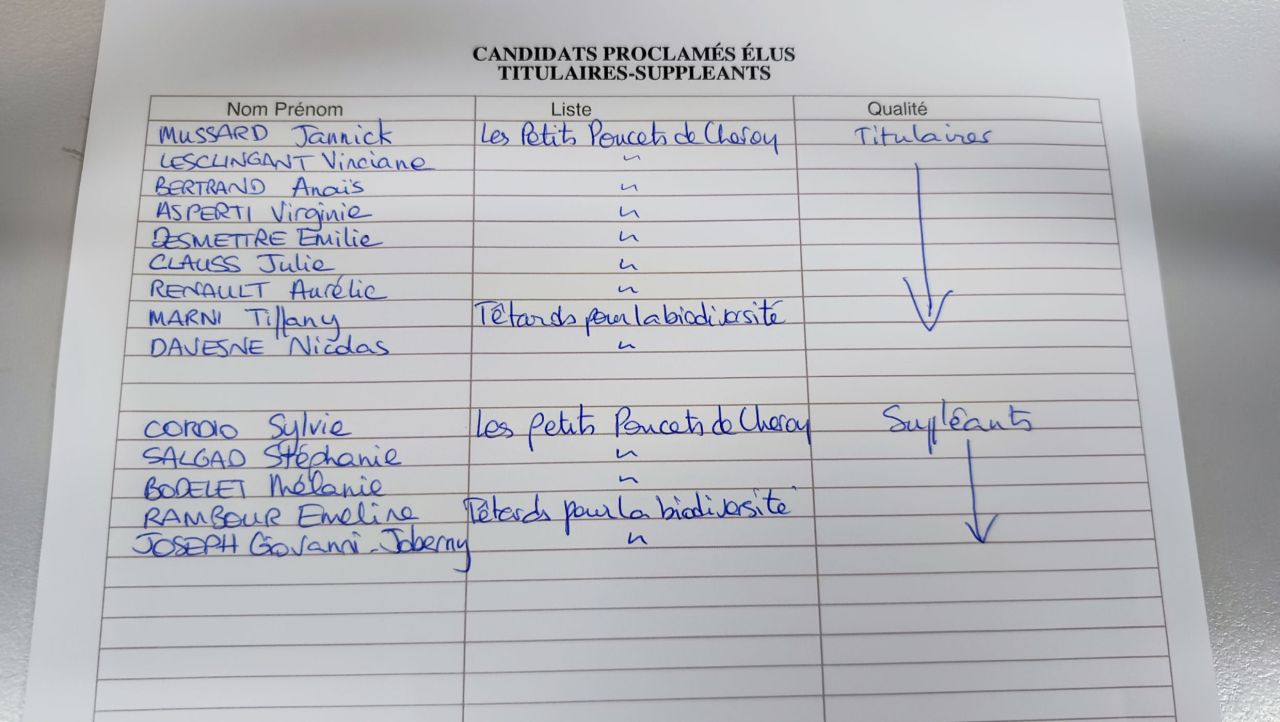 CANDIDATS PROCLAMÉS ÉLUS
TITULAIRES-SUPPLEANTS
Nom Prénom Liste Qualité
MUSSARD Jannick Les Petits Poucets de Cheroy Titulaires
LESCLINGANT Vinciane "
BERTRAND Anaïs "
ASPERTI Virginie "
DESMETTRE Emilie "
CLAUSS Julie "
RENAULT Aurélie "
MARNI Tiffany Têtards pour la biodiversité
DAVESNE Nicolas "
CORDIO Sylvie Les petits Poucets de Cheroy Suppléants
SALGAD Stéphanie "
BODELET Mélanie "
RAMBOUR Emeline Têtards pour la biodiversité
JOSEPH Giovanni-Joberny "